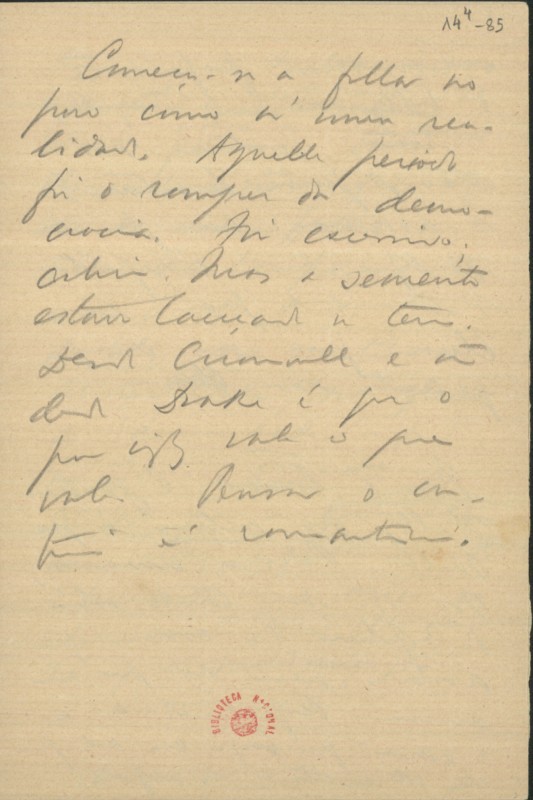 14⁴-85
Começa-se a fallar no
povo como de uma rea-
lidade. Aquelle periodo
foi o romper da demo-
cracia. Foi excessivo,
Mas a semente
estava lançada á terra.
Desde Cromwell e não
desde Drake é que o
povo inglez vale o que
vale. Pensar o con-
trario é romantismo.
BIBLIOTECA NACIONAL